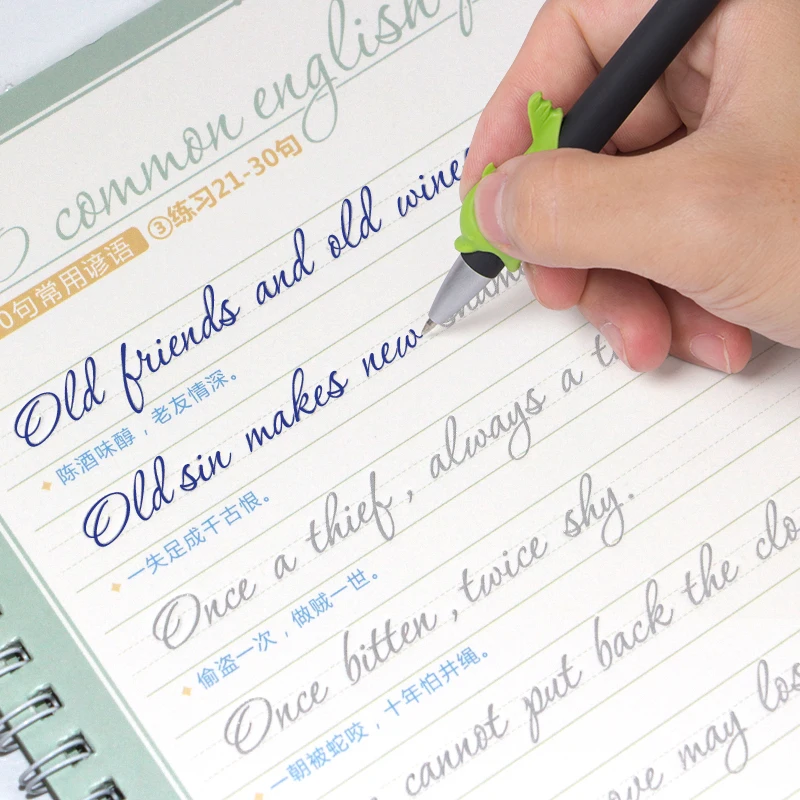 common english
0句常用谚语 ③练习21-30句
Old friends and old wines
陈酒味醇，老友情深。
Old sin makes new shame
一失足成千古恨。
Once a thief, always a
偷盗一次，做贼一世。
Once bitten, twice shy.
一朝被蛇咬，十年怕井绳。
cannot put back the clo
may los